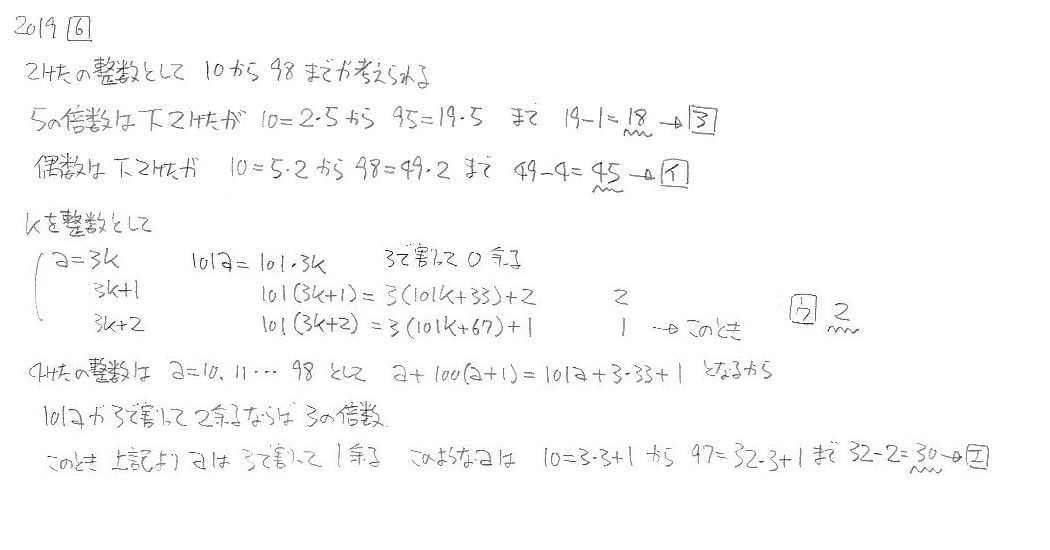 2019 6
2けたの整数として 10から98までが考えられる
5の倍数は下2けたが 10=2・5から 95=19・5 まで 19-1=18 → ア
偶数は下2けたが 10=5・2から98=49・2まで 49-4=45 → イ
kを整数として
a=3k 101a=101・3k 3で割って0余る
3k+1 101(3k+1)=3(101k+33)+2 2
3k+2 101(3k+2)=3(101k+67)+1 1 → このとき ウ 2
4けたの整数は a=10, 11… 98 として a+100(a+1)=101a+3・33+1 となるから
101aが3で割って2余るならば 3の倍数
このとき 上記より aは 3で割って 1余る このようなaは 10=3・3+1 から 97=32・3+1 まで 32-2=30 → エ